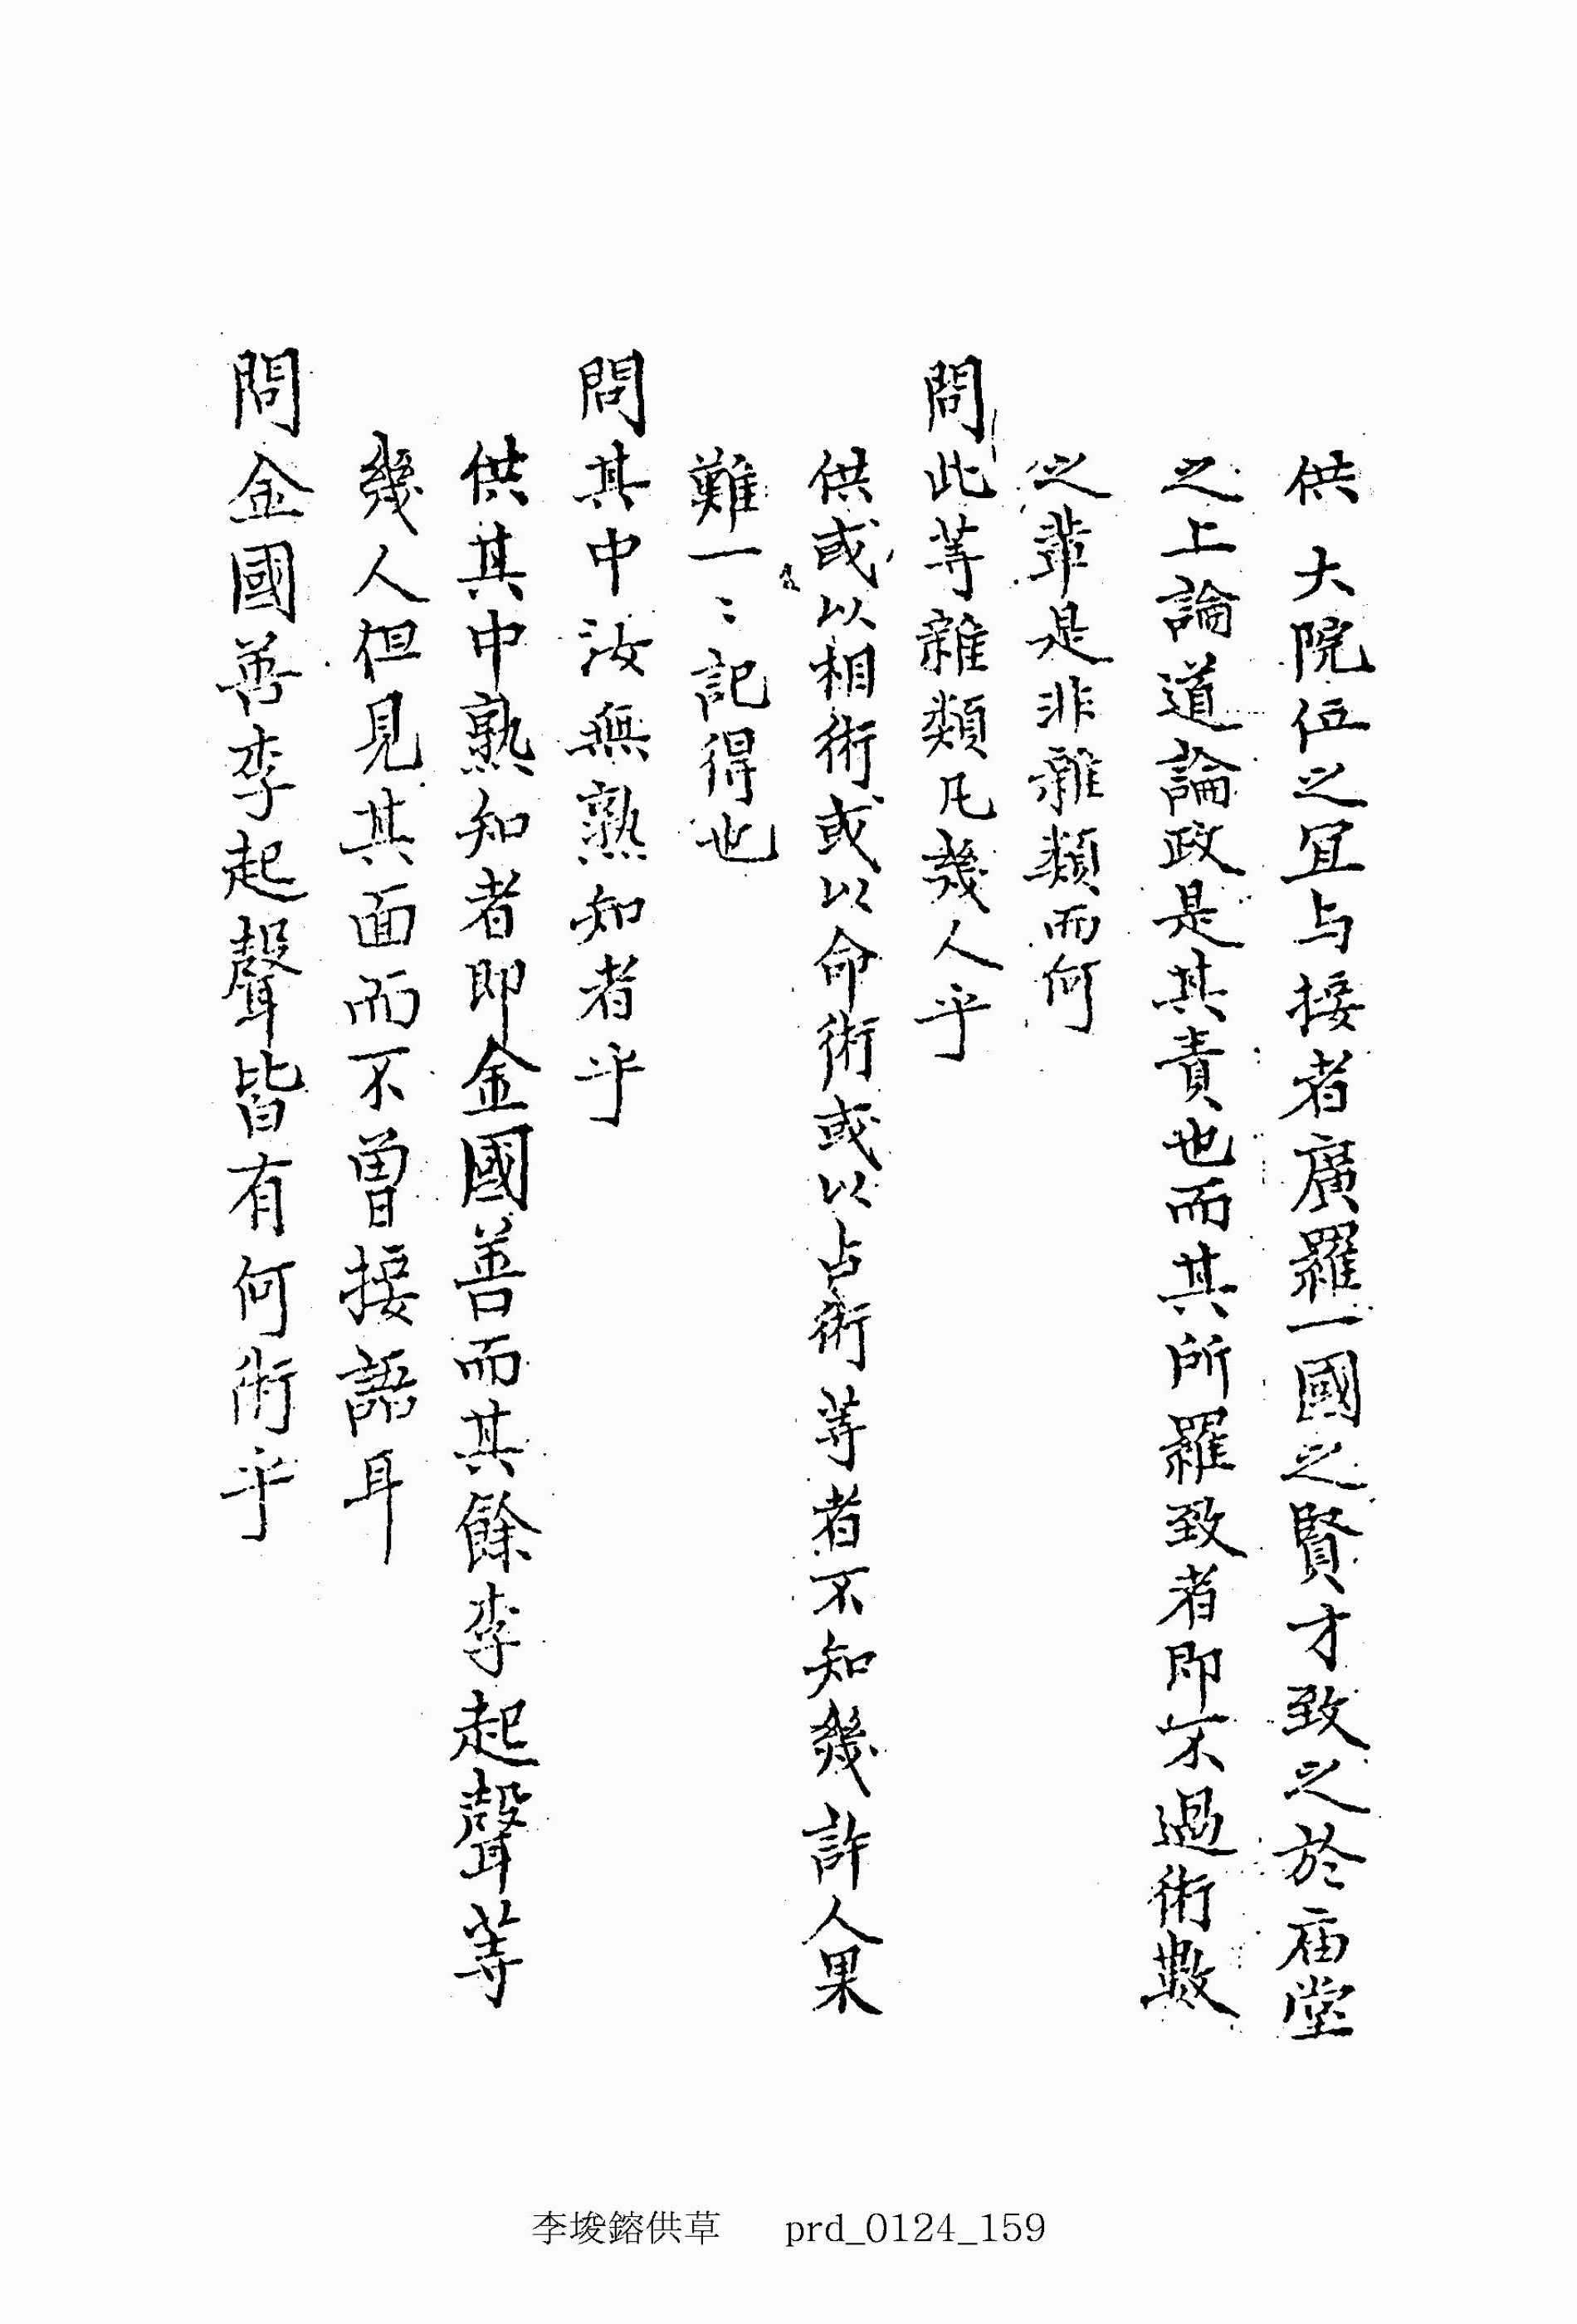 供 大院位之冝与接者廣羅一國之賢才致之於庙堂
之上論道論政是其責也而其所羅致者即不過術數
之輩是非雜類而何
問此等雜類凡幾人乎
供或以相術或以命術或以占術等者不知幾許人果
難一〻記得也
問其中汝無熟知者乎
供其中熟知者即金國善而其餘李起聲等
幾人但見其面而不曾接語耳
問金國善李起聲皆有何術乎
李埈鎔供草 prd_0124_159